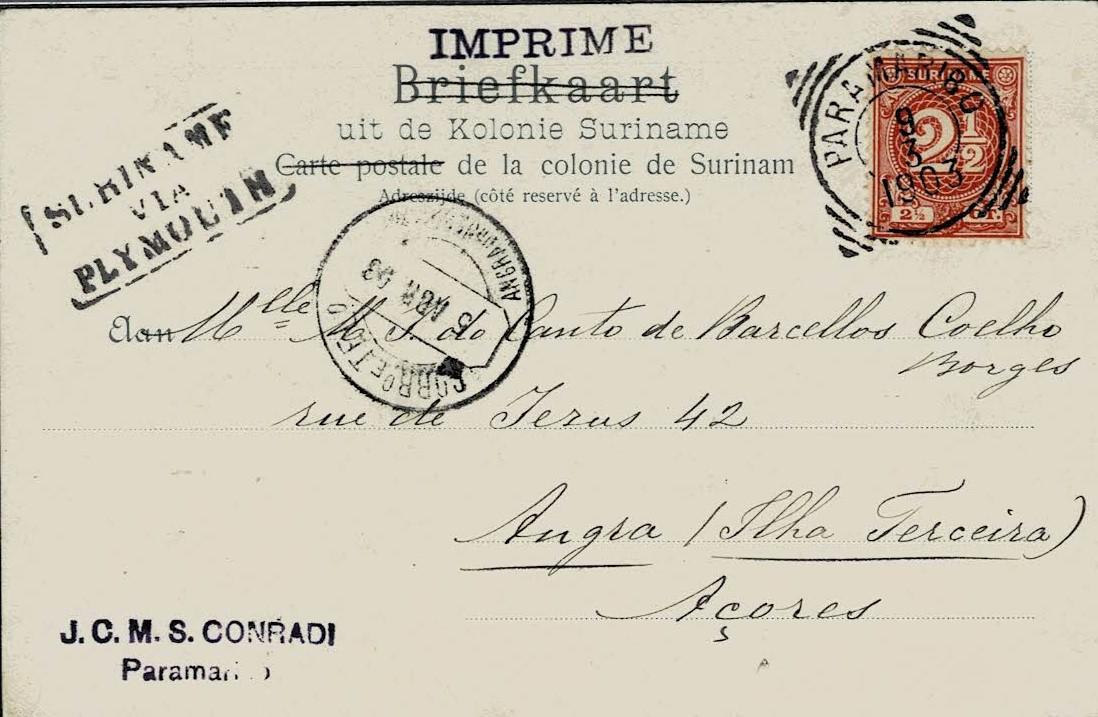 IMPRIME
Briefkaart
uit de Kolonie Suriname
Carte postale de la colonie de Surinam
Adreszijde (côté reservé à l'adresse.)
SURINAME
VIA
PLYMOUTH
PARAMARIBO
9
3
1903
SURINAME
2½
2½ CT.
CORRO E TELO
5 ABR 03
Aan Mlle M. J. do Canto de Barcellos Coelho
Borges
rue de Jezus 42
Angra (Ilha Terceira)
Açores
J. C. M. S. CONRADI